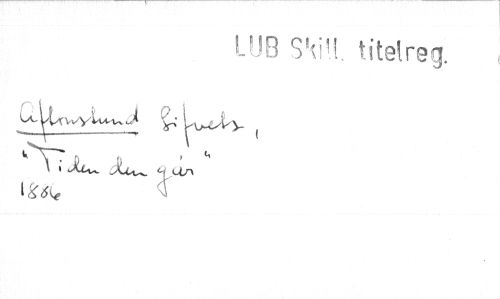 LUB Skill. titelreg.
Aftonstund lifvets,
"Tiden den går"
1886